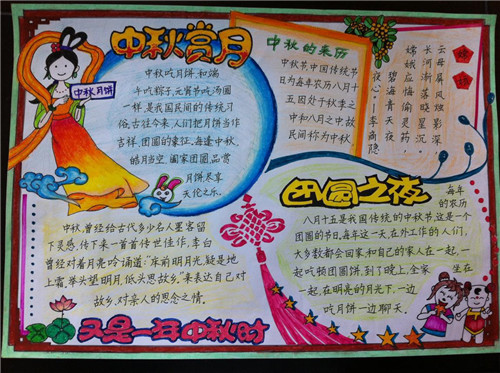 中秋赏月
中秋月饼
中秋吃月饼,和端
午吃粽子,元宵节吃汤圆
一样,是我国民间的传统习
俗。古往今来,人们把月饼当作
吉祥、团圆的象征。每逢中秋,
皓月当空,阖家团圆,品赏
月饼,尽享
天伦之乐。
中秋的来历
中秋节中国传统节
日为每年农历八月十
五因处于秋季之
中和八月之中故
民间称为中秋
嫦娥
云母屏风烛影深,
长河渐落晓星沉。
嫦娥应悔偷灵药,
碧海青天夜
夜心。——李商隐
中秋,曾经给古代多少名人墨客留
下灵感,传下来一首首传世佳作,李白
曾经对着月亮吟诵道:“床前明月光,疑是地
上霜,举头望明月,低头思故乡。”来表达自己对
故乡,对亲人的思念之情。
团圆之夜
每年
的农历
八月十五是我国传统的中秋节,这是一个
团圆的节日。每年这一天,在外工作的人们,
大多数都会回家,和自己的家人在一起,一
起吃顿团圆饼,到了晚上,全家坐在
一起,在明亮的月光下,一边
吃月饼一边聊天。
又是一年中秋时